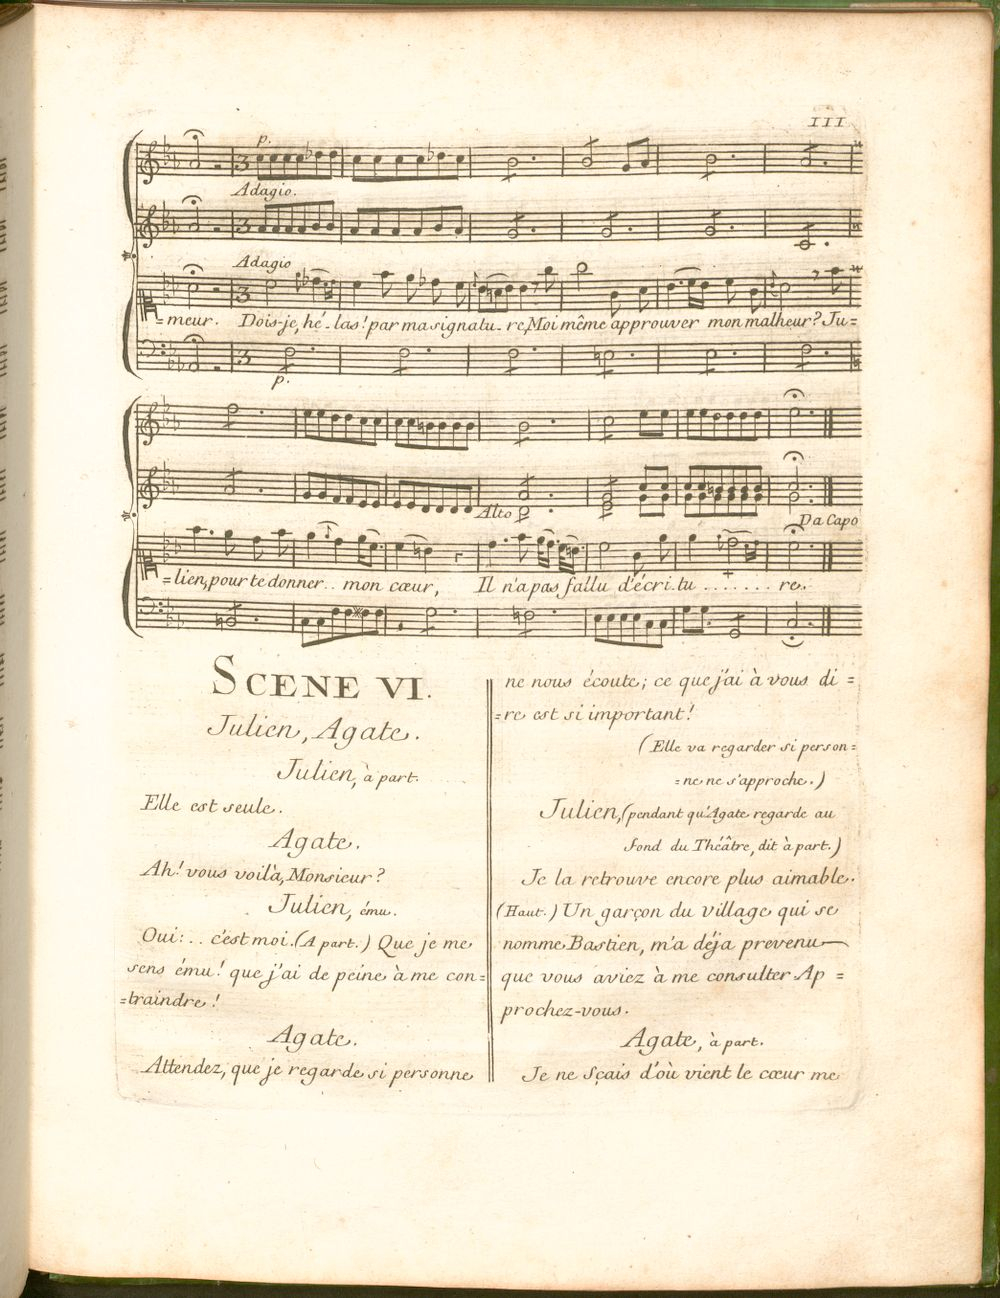 III
p.
Adagio.
Adagio
=meur. Dois-je, hé-las! par ma signatu-re, Moi même approuver mon malheur? Ju=
p.
Alto
Da Capo
=lien, pour te donner.. mon cœur, Il n'a pas fallu d'écri.tu ....... re.
SCENE VI.
Julien, Agate.
Julien, à part.
Elle est seule.
Agate.
Ah! vous voilà, Monsieur?
Julien, ému.
Oui:.. c'est moi. (A part.) Que je me
sens ému! que j'ai de peine à me con=
=traindre!
Agate.
Attendez, que je regarde si personne
ne nous écoute; ce que j'ai à vous di=
=re est si important!
(Elle va regarder si person=
=ne ne s'approche.)
Julien, (pendant qu'Agate regarde au
fond du Théâtre, dit à part.)
Je la retrouve encore plus aimable.
(Haut.) Un garçon du village qui se
nomme Bastien, m'a déja prevenu
que vous aviez à me consulter Ap=
prochez-vous.
Agate, à part.
Je ne Sçais d'où vient le cœur me